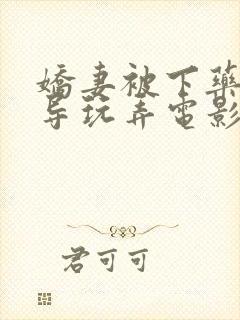 嬌妻被下藥
导玩弄電影
君可可